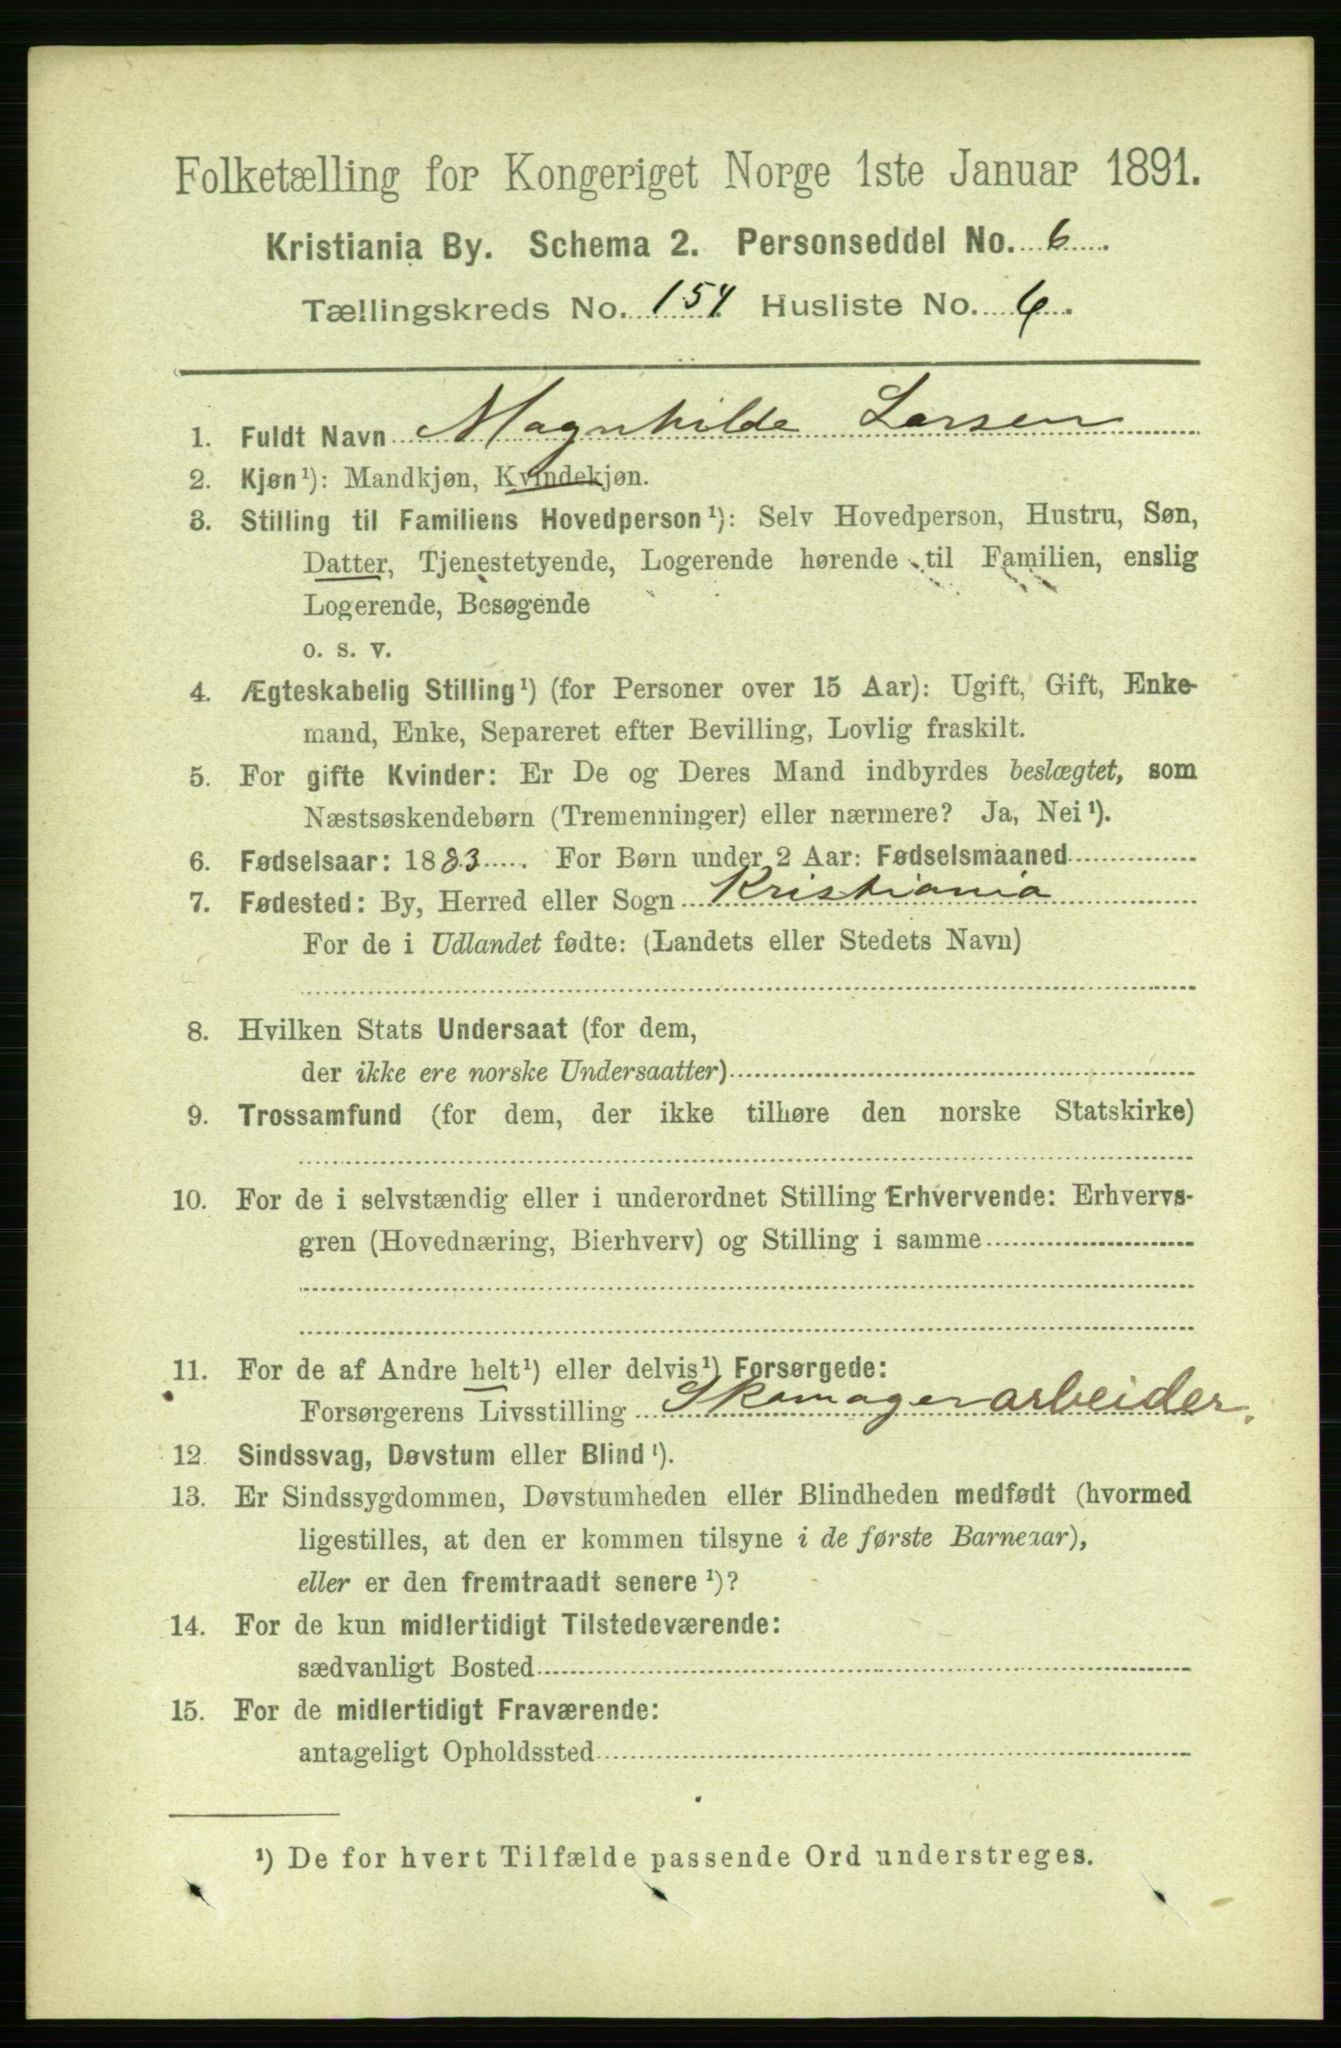 Folketælling for Kongeriget Norge 1ste Januar 1891.
Kristiania By. Schema 2. Personseddel No. 6.
Tællingskreds No. 154 Husliste No. 6.
1. Fuldt Navn Magnhilde Larsen
2. Kjøn¹): Mandkjøn, Kvindekjøn.
3. Stilling til Familiens Hovedperson¹): Selv Hovedperson, Hustru, Søn,
Datter, Tjenestetyende, Logerende hørende til Familien, enslig
Logerende, Besøgende
o. s. v.
4. Ægteskabelig Stilling¹) (for Personer over 15 Aar): Ugift, Gift, Enke-
mand, Enke, Separeret efter Bevilling, Lovlig fraskilt.
5. For gifte Kvinder: Er De og Deres Mand indbyrdes beslægtet, som
Næstsøskendebørn (Tremenninger) eller nærmere? Ja, Nei¹).
6. Fødselsaar: 1883. For Børn under 2 Aar: Fødselsmaaned
7. Fødested: By, Herred eller Sogn Kristiania
For de i Udlandet fødte: (Landets eller Stedets Navn)
8. Hvilken Stats Undersaat (for dem,
der ikke ere norske Undersaatter)
9. Trossamfund (for dem, der ikke tilhøre den norske Statskirke)
10. For de i selvstændig eller i underordnet Stilling Erhvervende: Erhvervs-
gren (Hovednæring, Bierhverv) og Stilling i samme
11. For de af Andre helt¹) eller delvis¹) Forsørgede:
Forsørgerens Livsstilling Skomagerarbeider.
12. Sindssvag, Døvstum eller Blind¹).
13. Er Sindssygdommen, Døvstumheden eller Blindheden medfødt (hvormed
ligestilles, at den er kommen tilsyne i de første Barneaar),
eller er den fremtraadt senere¹)?
14. For de kun midlertidigt Tilstedeværende:
sædvanligt Bosted
15. For de midlertidigt Fraværende:
antageligt Opholdssted
¹) De for hvert Tilfælde passende Ord understreges.